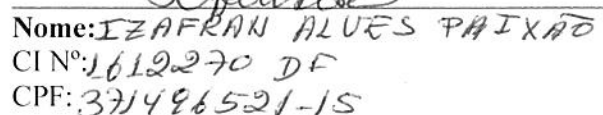 Nome: IZAFRAN ALVES PAIXÃO
CI Nº: 1612270 DF
CPF: 371496521-15